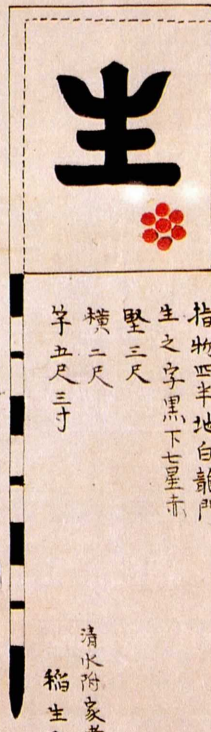 生
指物四半地白龍門
生之字黒下七星赤
堅三尺
横二尺
竿五尺三寸
清水附家
稲生